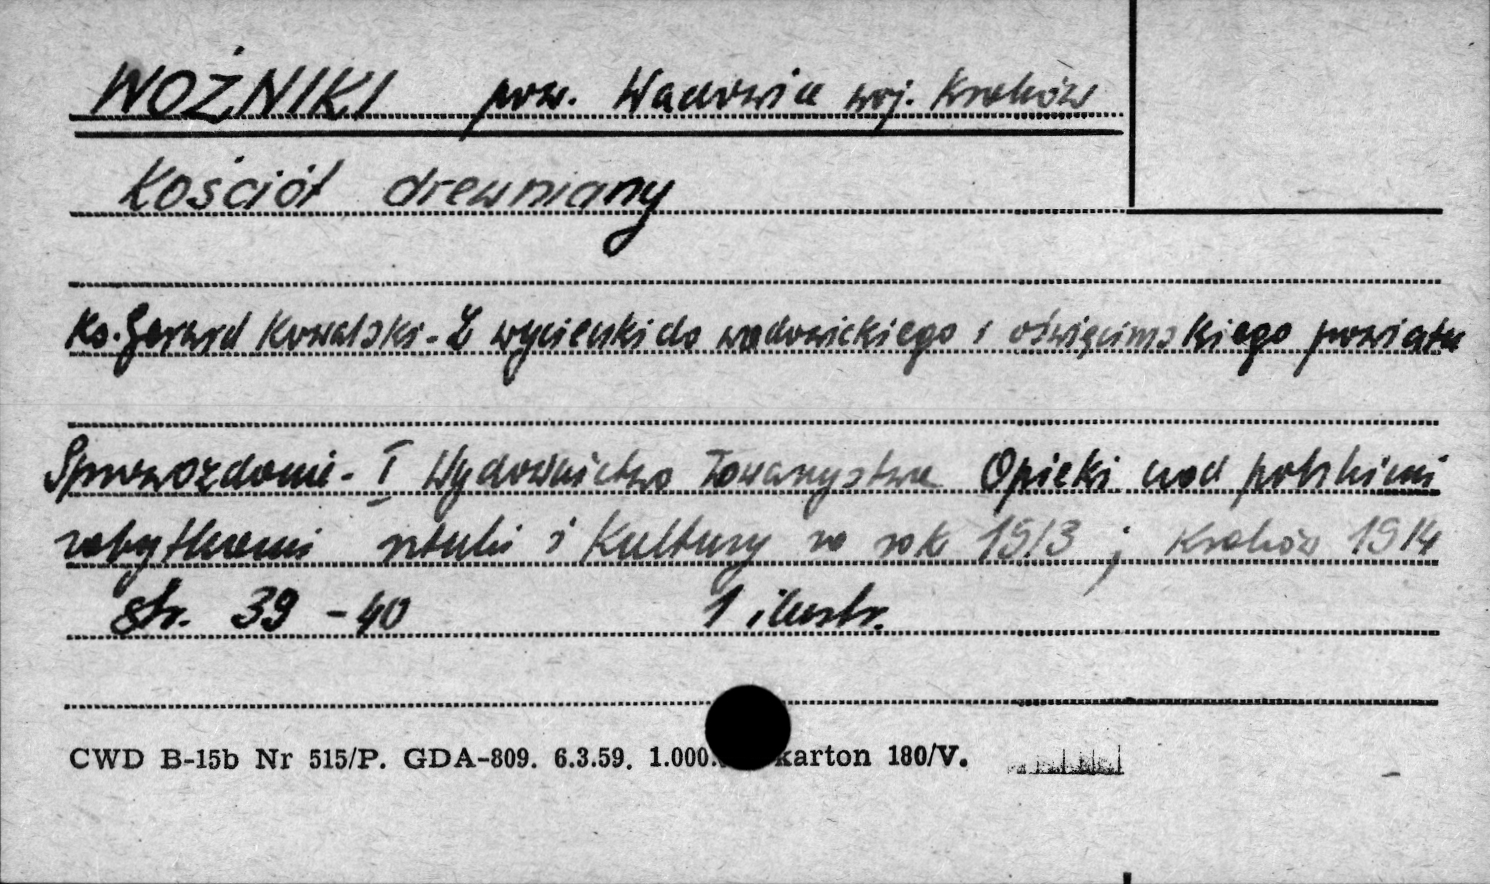 WOŹNIKI pow. Wadowice woj. Kraków
Kościół drewniany
Ks. Gerard Kowalski - Z wycieczki do wadowickiego i oświęcimskiego powiatu
Sprawozdanie - I Wydawnictwo Towarzystwa Opieki nad polskimi
zabytkami sztuki i Kultury za rok 1913 ; Kraków 1914
str. 39 - 40 1 ilustr.
CWD B-15b Nr 515/P. GDA-809. 6.3.59. 1.000. karton 180/V.